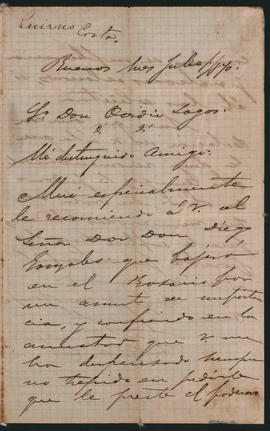 Quirno
Costa.
Buenos Aires Julio 9/70.
Sr Don Ovidio Lagos
Mi distinguido Amigo:
Mui especialmente
le recomiendo á V. al
Señor Dor Don Diego
Gonzales que bajará
en el Rosario por
un asunto de importan
cia, y confiando en la
amistad que V. me
ha dispensado siempre
no trepido en pedirle
que le preste el poderoso